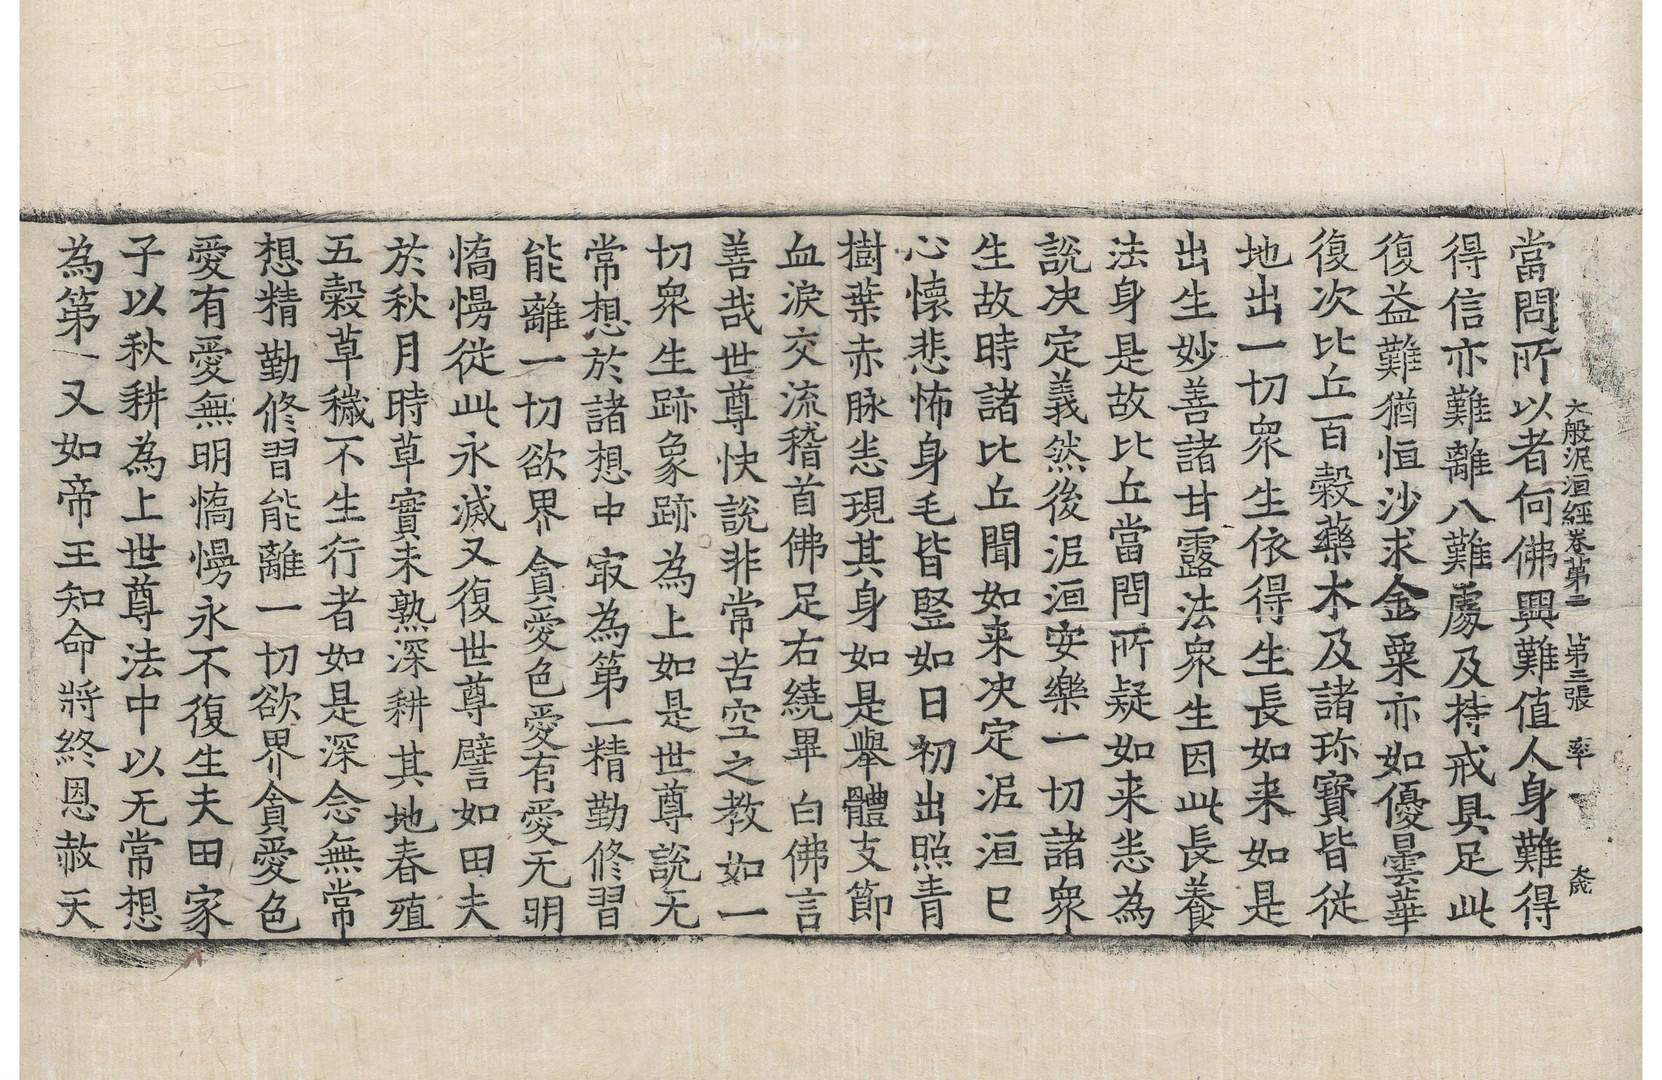 大般泥洹經卷第二 第三張 率
當問所以者何佛興難值人身難得
得信亦難離八難處及持戒具足此
復益難猶恒沙求金粟亦如優曇華
復次比丘百穀藥木及諸珎寶皆從
地出一切衆生依得生長如来如是
出生妙善諸甘露法衆生因此長養
法身是故比丘當問所疑如来悉為
說决定義然後泥洹安樂一切諸衆
生故時諸比丘聞如来决定泥洹已
心懷悲怖身毛皆竪如日初出照青
樹葉赤脉悉現其身如是舉體支節
血淚交流稽首佛足右繞畢白佛言
善哉世尊快說非常苦空之教如一
切衆生跡象跡為上如是世尊說无
常想於諸想中㝡為第一精勤修習
能離一切欲界貪愛色愛有愛无明
憍慢從此永滅又復世尊譬如田夫
於秋月時草實未熟深耕其地春殖
五穀草穢不生行者如是深念無常
想精勤修習能離一切欲界貪愛色
愛有愛無明憍慢永不復生夫田家
子以秋耕為上世尊法中以无常想
為第一又如帝王知命將終恩赦天